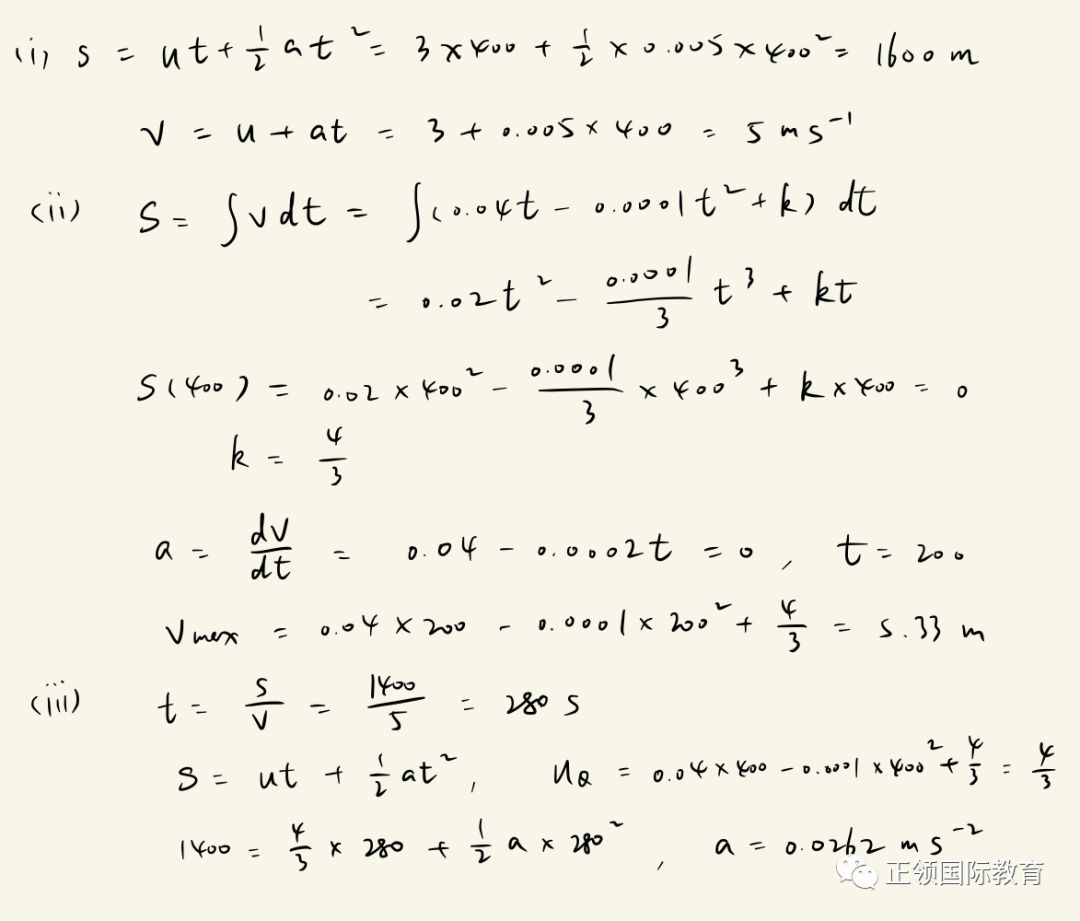 (i) s = ut + 1/2 at² = 3 × 400 + 1/2 × 0.005 × 400² = 1600 m
v = u + at = 3 + 0.005 × 400 = 5 ms⁻¹
(ii) S = ∫v dt = ∫(0.04t - 0.0001t² + k) dt
= 0.02t² - 0.0001/3 t³ + kt
S(400) = 0.02 × 400² - 0.0001/3 × 400³ + k × 400 = 0
k = 4/3
a = dv/dt = 0.04 - 0.0002t = 0, t = 200
Vmax = 0.04 × 200 - 0.0001 × 200² + 4/3 = 5.33 m
(iii) t = s/v = 1400/5 = 280 s
S = ut + 1/2 at², u_Q = 0.04 × 400 - 0.0001 × 400² + 4/3 = 4/3
1400 = 4/3 × 280 + 1/2 a × 280², a = 0.0262 ms⁻²
正领国际教育